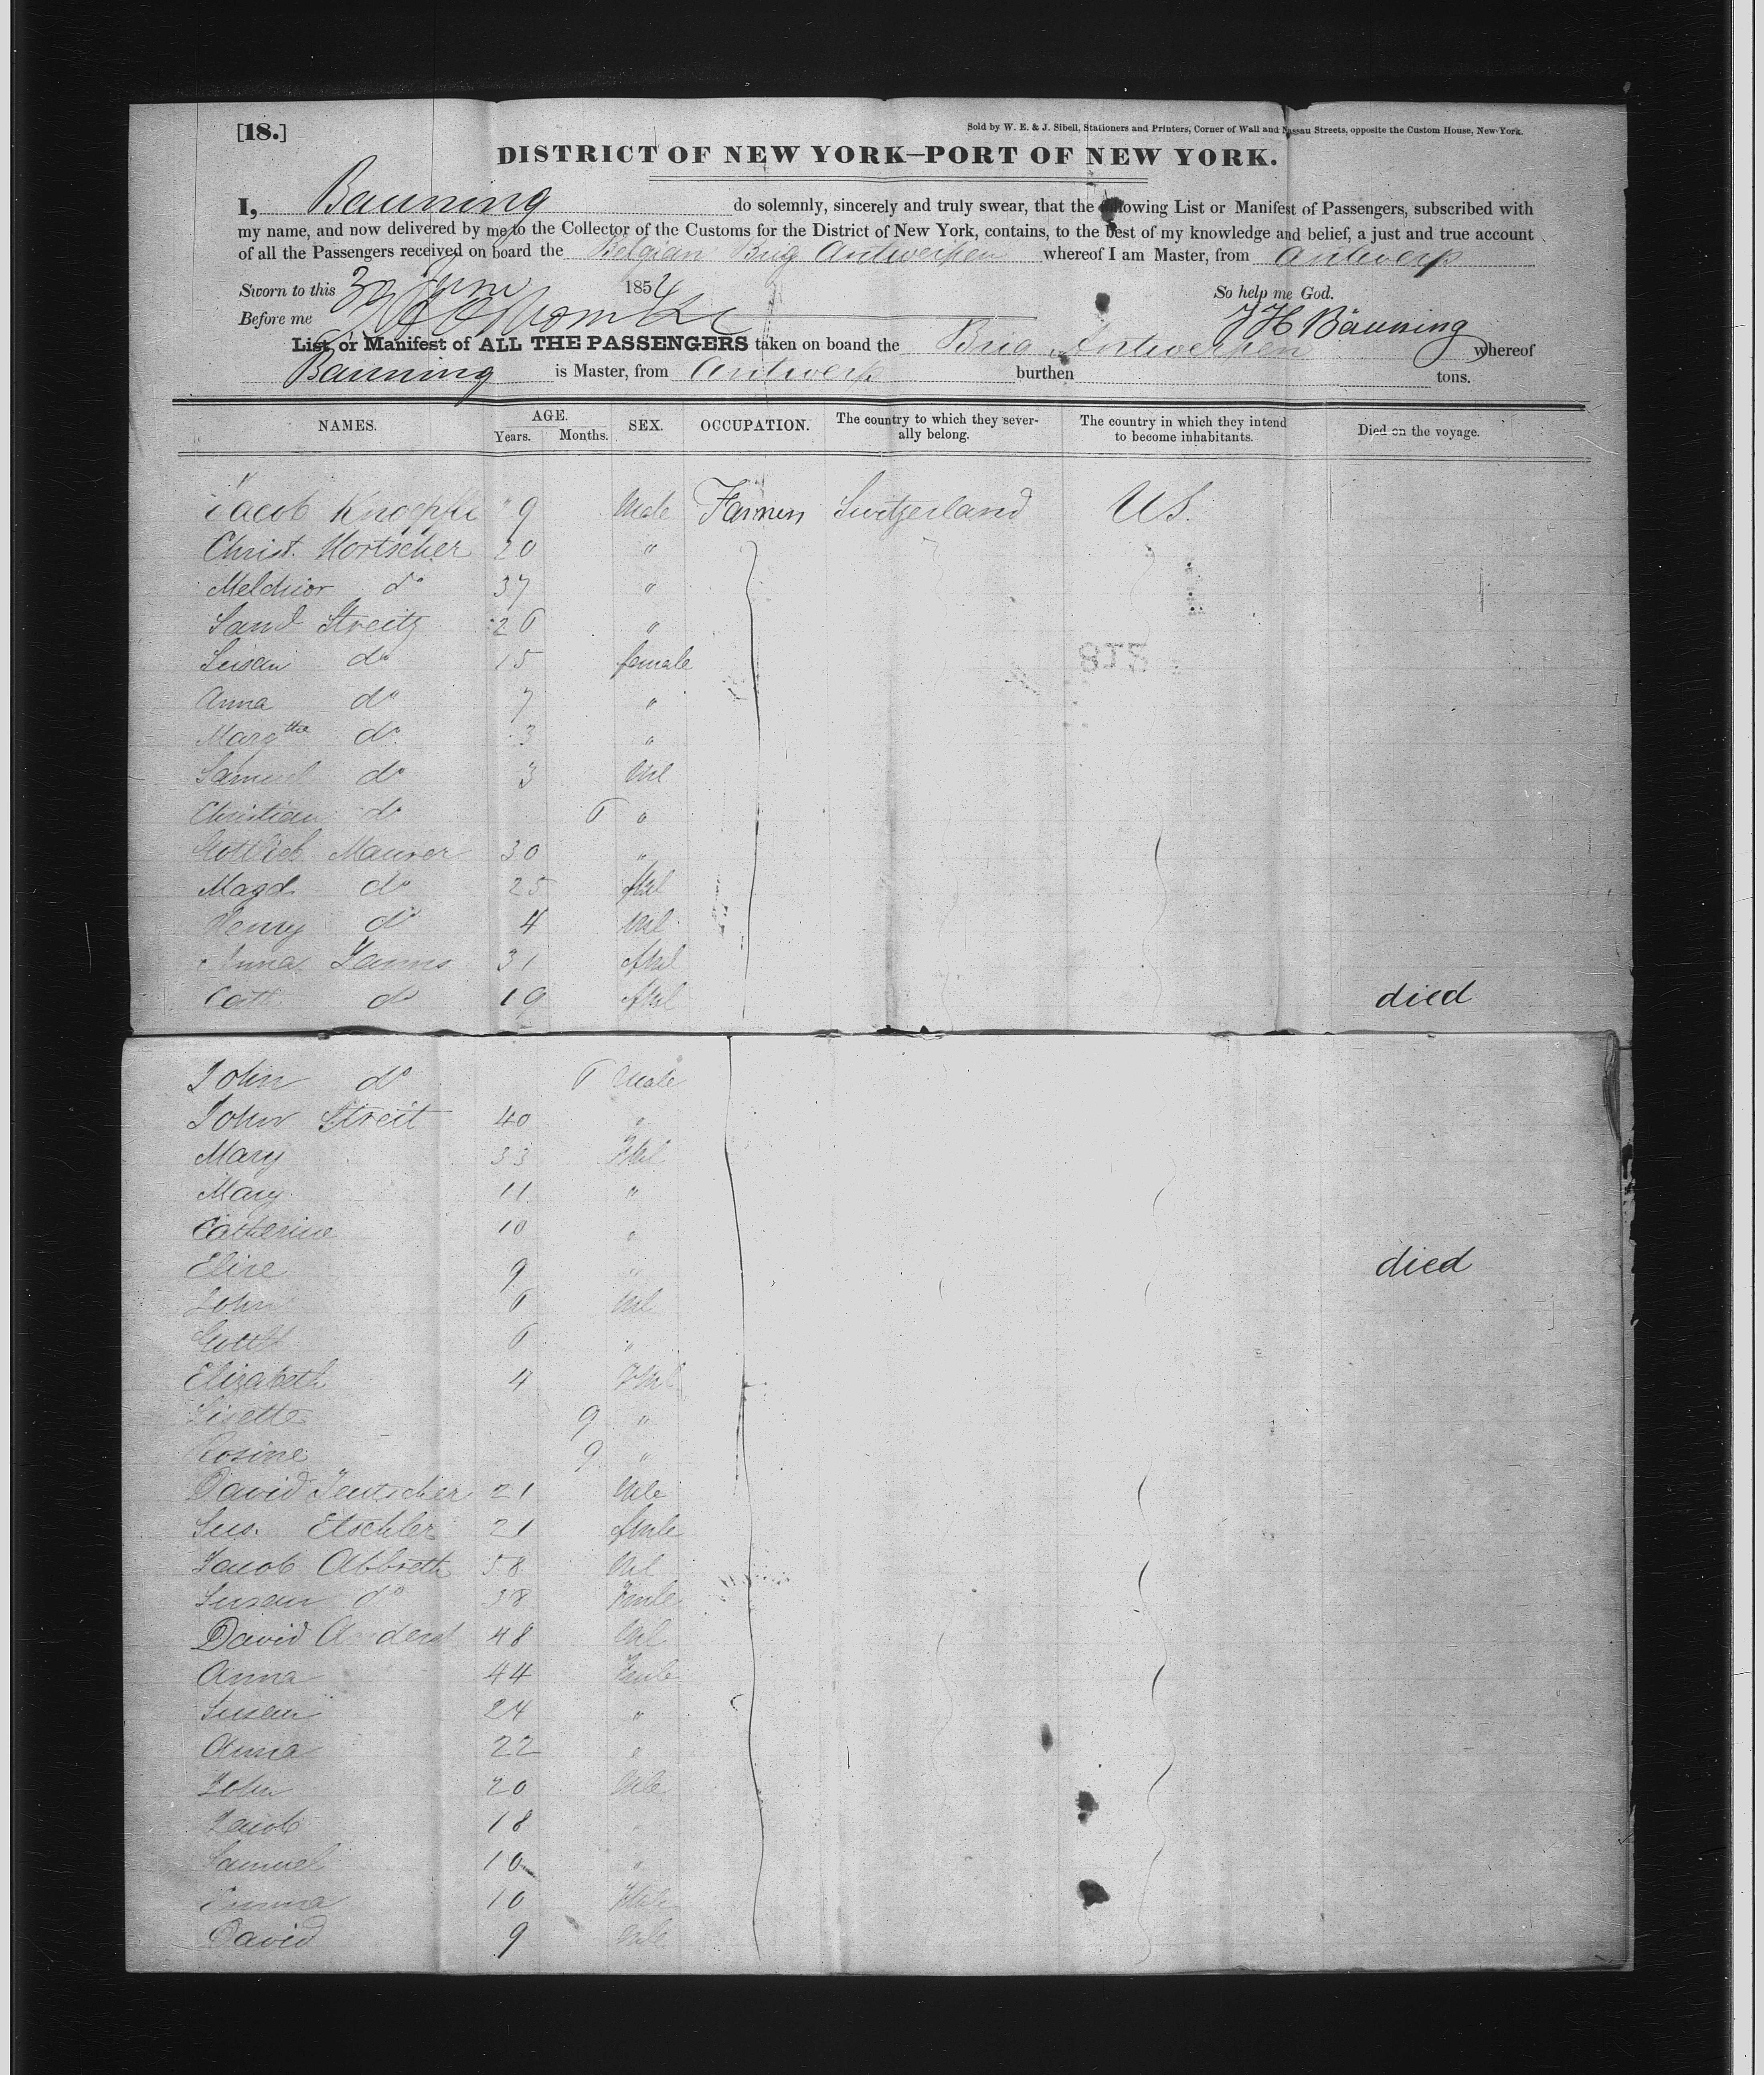 [18.]
Sold by W. E. & J. Sibell, Stationers and Printers, Corner of Wall and Nassau Streets, opposite the Custom House, New-York.
DISTRICT OF NEW YORK—PORT OF NEW YORK.
I, Bauning do solemnly, sincerely and truly swear, that the following List or Manifest of Passengers, subscribed with
my name, and now delivered by me to the Collector of the Customs for the District of New York, contains, to the best of my knowledge and belief, a just and true account
of all the Passengers received on board the Belgian Brig Antwerpen whereof I am Master, from Antwerp
Sworn to this 30 June 1854 So help me God.
Before me J H Bauning
List or Manifest of ALL THE PASSENGERS taken on boand the Brig Antwerpen whereof
Bauning is Master, from Antwerp burthen tons.
NAMES. AGE. Years. Months. SEX. OCCUPATION. The country to which they severally belong. The country in which they intend to become inhabitants. Died on the voyage.
Jacob Knoepfle 9 Male Farmers Switzerland US.
Christ. Hortscher 20 "
Melchior do 37 "
Sam'l Streitz 26 "
Susan do 15 female
Anna do 7 "
Margtha do 3 "
Samuel do 3 Ml
Christian do 6 "
Gottlieb Maurer 30 "
Magd. do 25 fml
Henry do 4 Ml
Anna Janns 31 fml
Cath. do 19 fml died
John do 6 Male
John Streit 40 "
Mary 33 Fml
Mary 11 "
Catherine 10 "
Elise 9 " died
John 6 Ml
Gottl. 6 "
Elizabeth 4 Fml
Lisette 9 "
Rosine 9 "
David Teutscher 21 Mle
Sus. Etschler 21 fmle
Jacob Abbreth 58 Ml
Susan do 38 Fmle
David 48 Ml
Anna 44 Fmle
Susan 24 "
Anna 22 "
John 20 Mle
Jacob 18
Samuel 10 "
10 Fmle
David 9 Mle